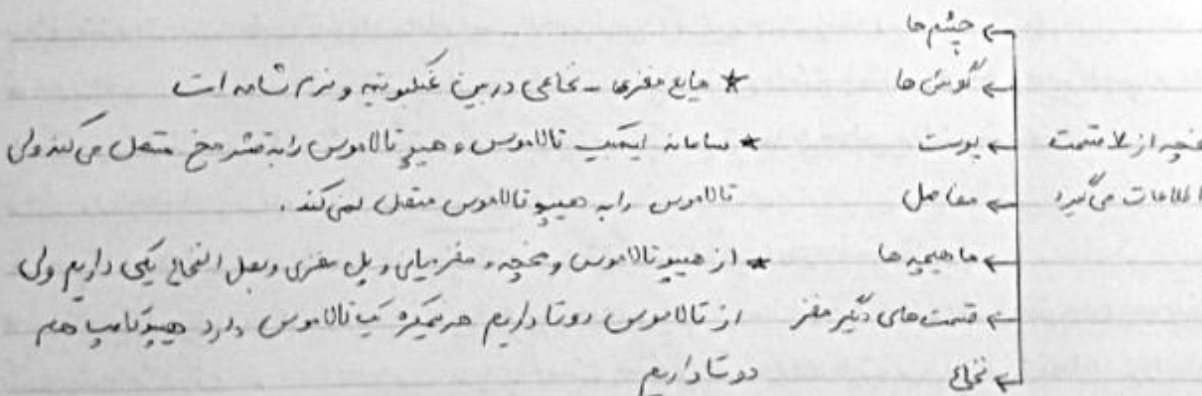 مخچه از ۷ قسمت
اطلاعات می‌گیرد
← چشم ها
← گوش ها
← پوست
← مفاصل
← ماهیچه ها
← قسمت های دیگر مغز
← نخاع
* مایع مغزی - نخاعی در بین عنکبوتیه و نرم شامه است
* سامانه لیمبیک تالاموس و هیپوتالاموس را به قشر مخ متصل می‌کند ولی
تالاموس را به هیپوتالاموس متصل نمی‌کند.
* از هیپوتالاموس و مخچه و مغز میانی و پل مغزی و بصل النخاع یکی داریم ولی
از تالاموس دوتا داریم هر نیمکره یک تالاموس دارد هیپوکامپ هم
دوتا داریم